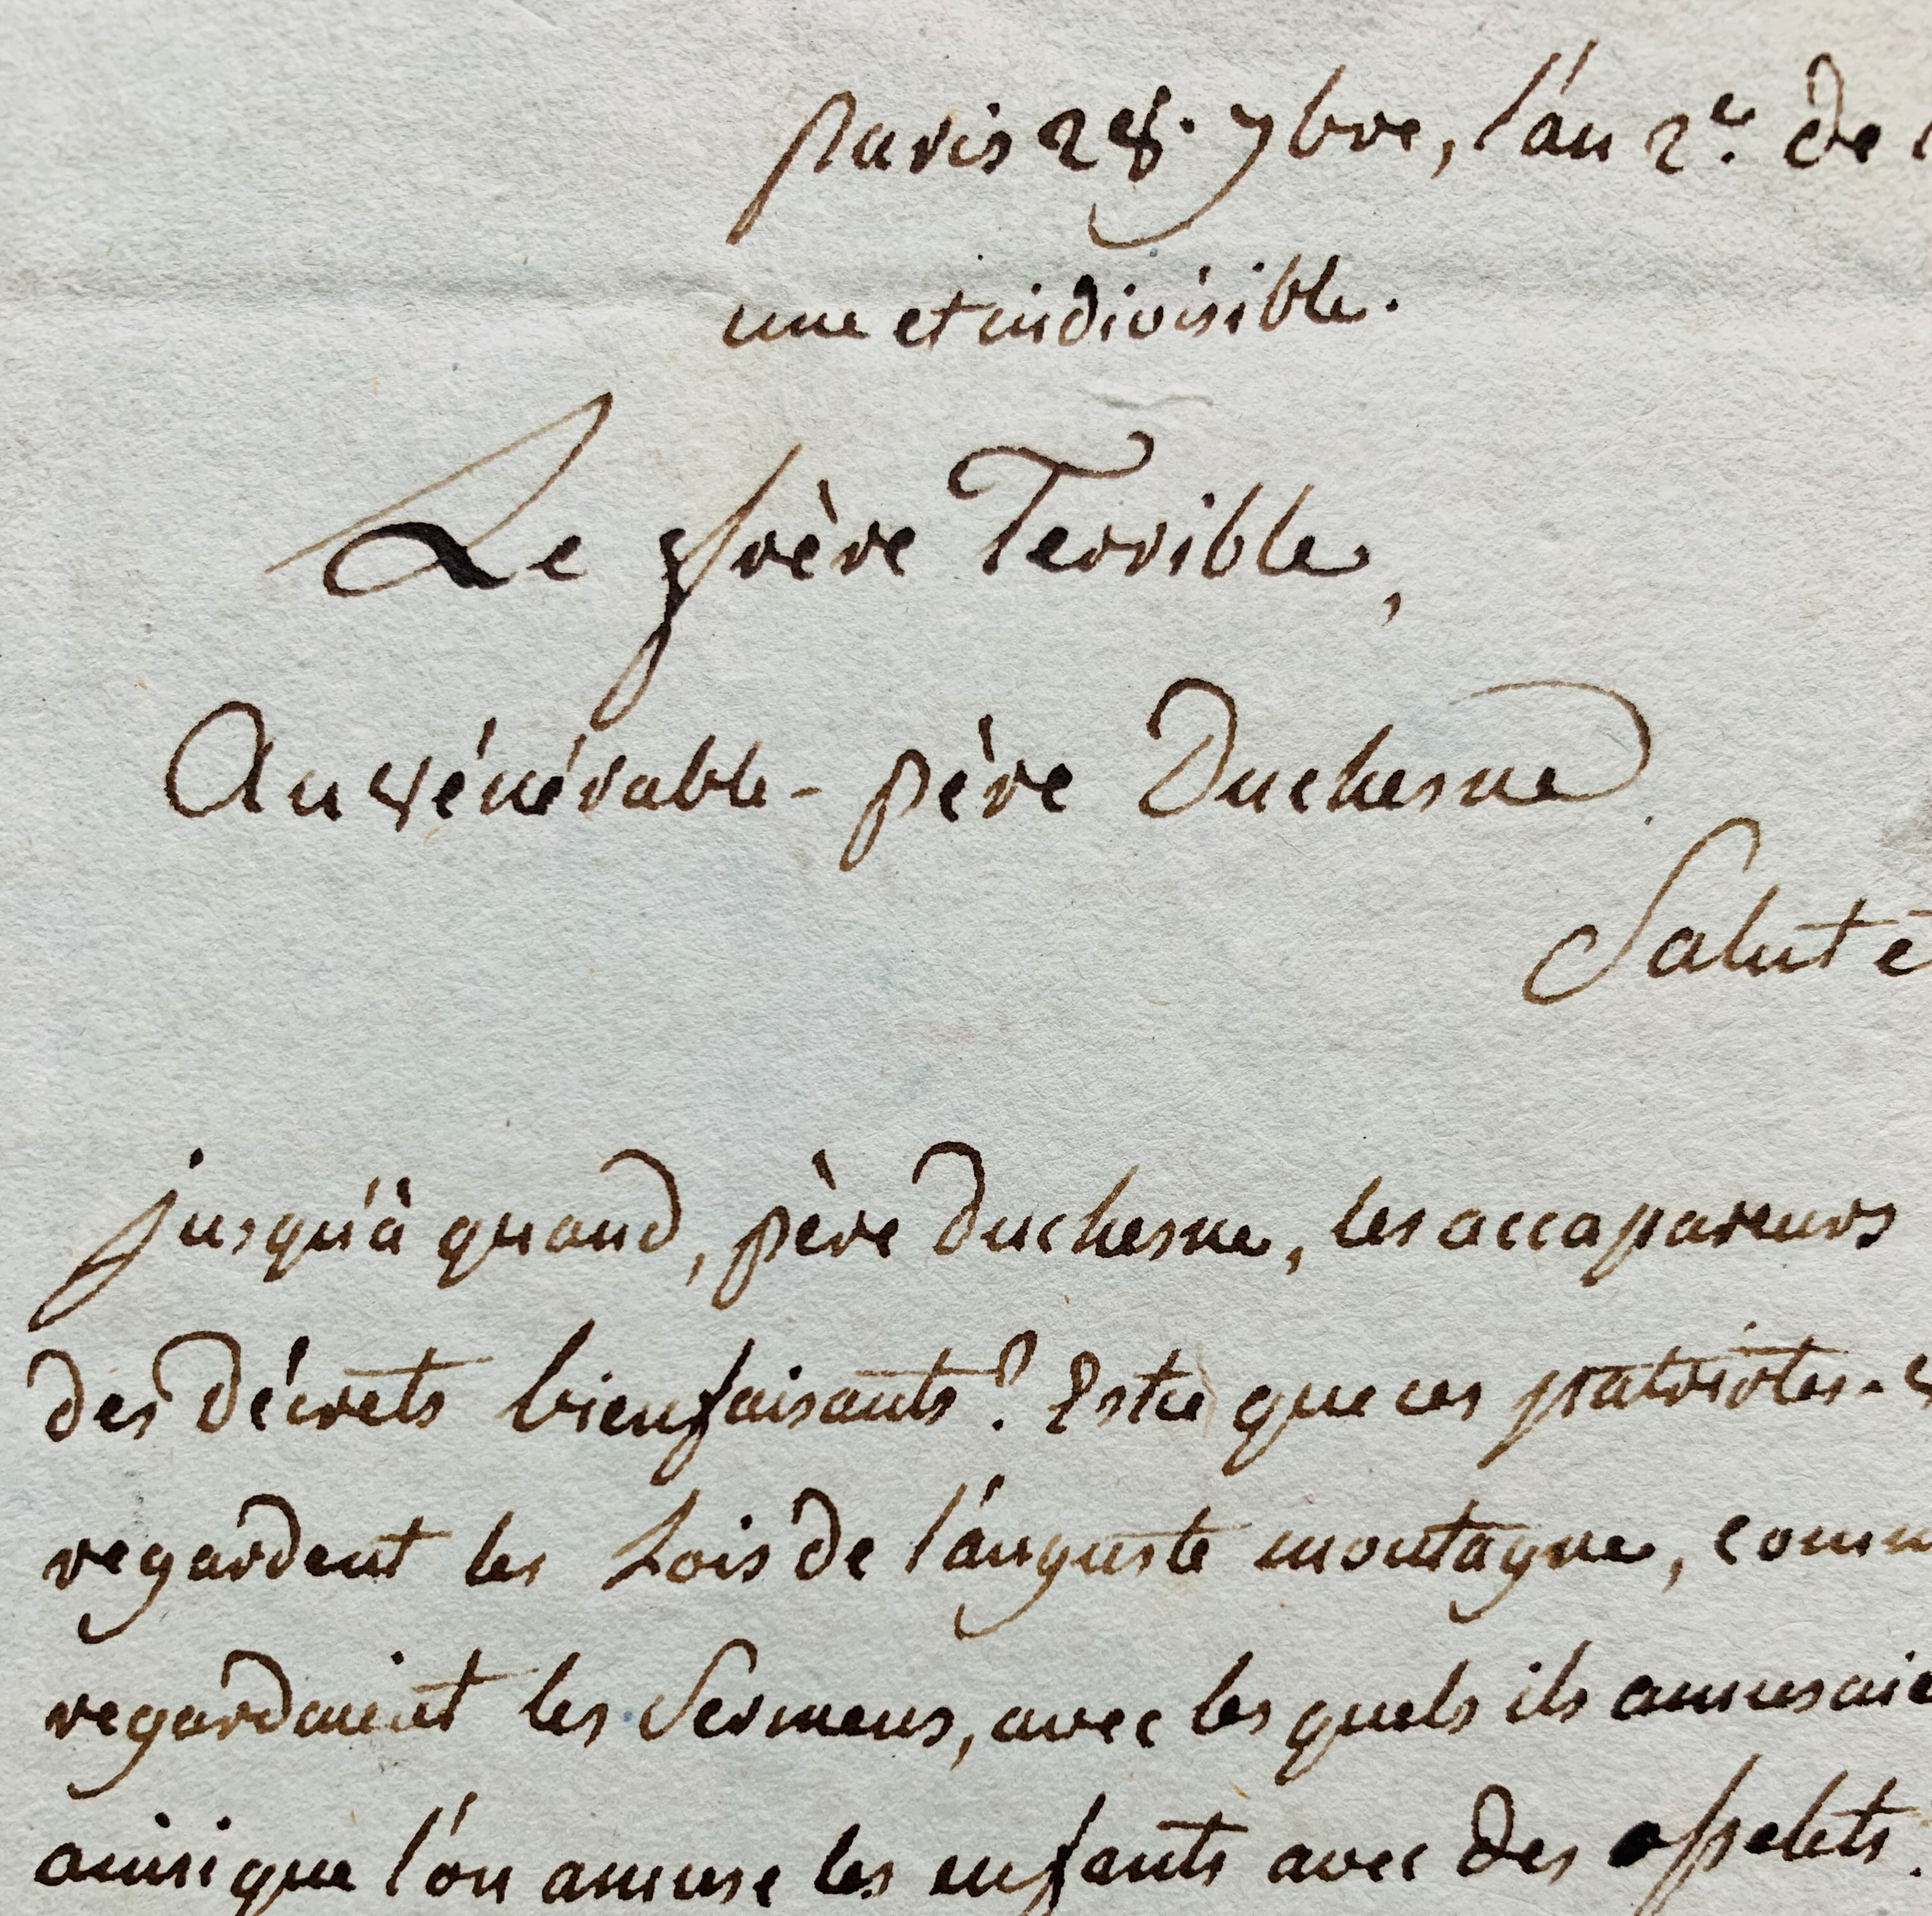 Paris 28. 7bre, l'an 2e. de
une et indivisible.
Le frère Terrible,
Au vénérable - père Duchesne.
Salut e
jusqu'à quand, père Duchesne, les accapareurs
des décrets bienfaisants? Estce que ces patriotes-
regardent les Lois de l'auguste montagne, comm
regardaient les Sermens, avec les quels ils amusaie
ainsi que l'on amuse les enfants avec des osselets.